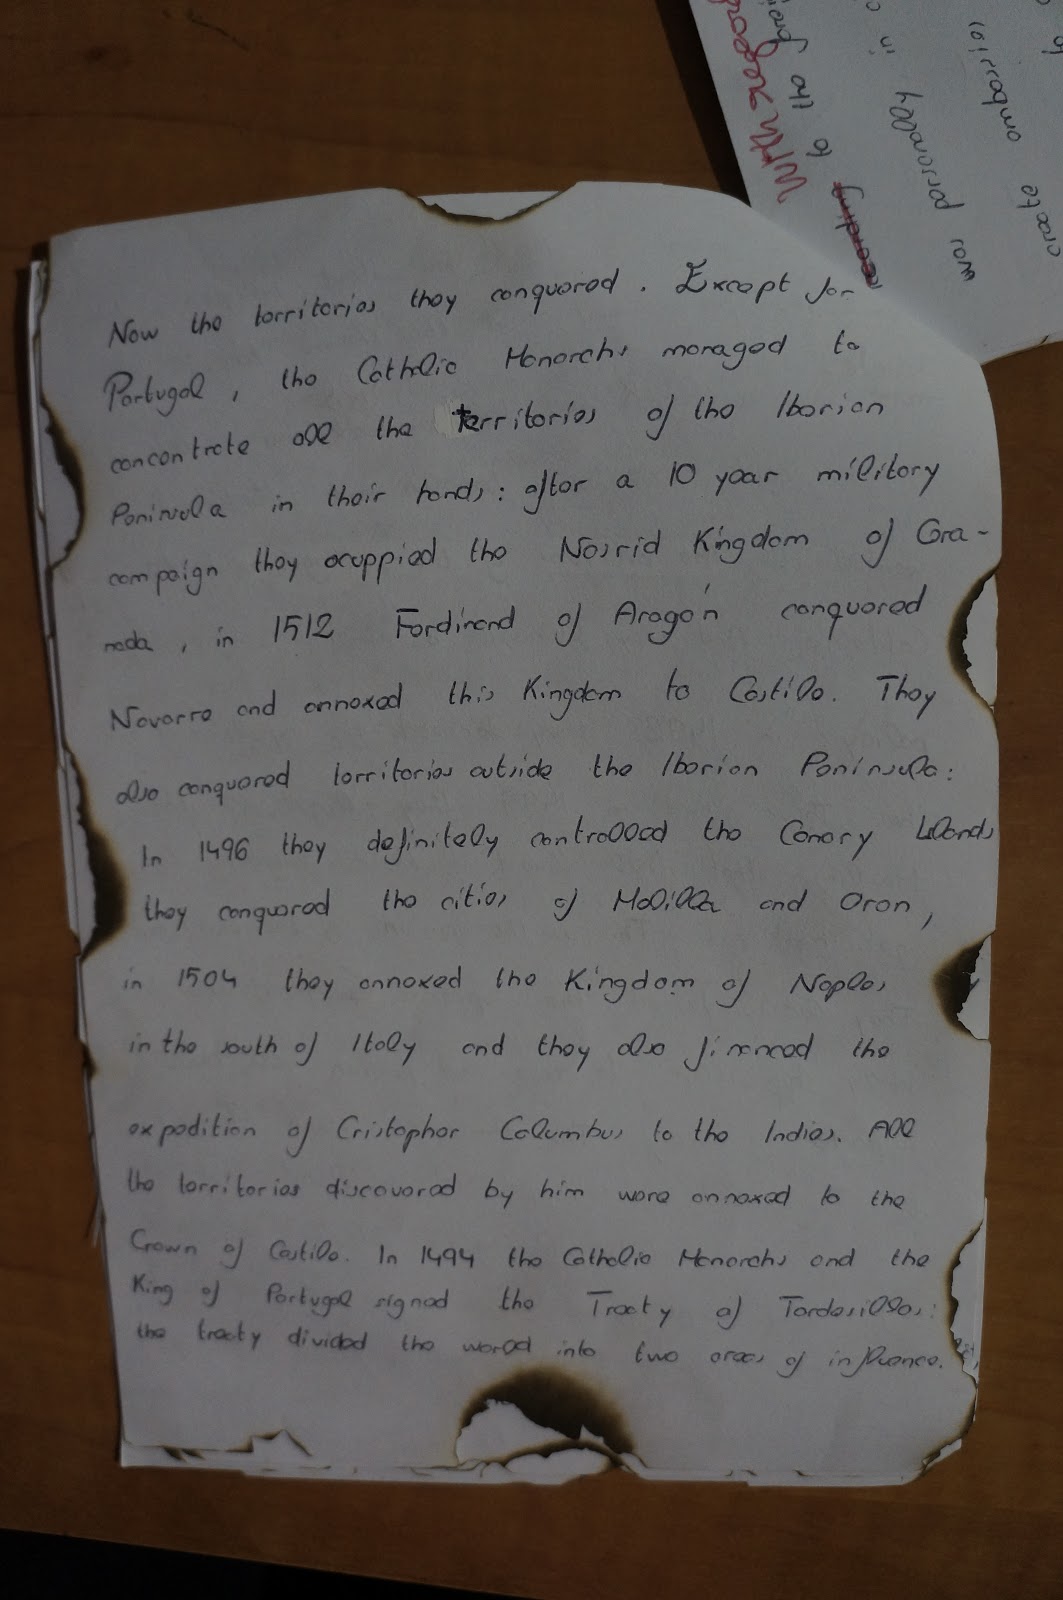 Now the territories they conquered. Except for
Portugal, the Catholic Monarchs managed to
concentrate all the territories of the Iberian
Peninsula in their hands: after a 10 year military
campaign they ocuppied the Nasrid Kingdom of Gra-
nada, in 1512 Ferdinand of Aragón conquered
Navarre and annexed this Kingdom to Castile. They
also conquered territories outside the Iberian Península:
In 1496 they definitely controlled the Canary Islands
they conquered the cities of Melilla and Oran,
in 1504 they annexed the Kingdom of Naples
in the south of Italy and they also financed the
expedition of Cristopher Columbus to the Indies. All
the territories discovered by him were annexed to the
Crown of Castile. In 1494 the Catholic Monarchs and the
King of Portugal signed the Treaty of Tordesillas:
the treaty divided the world into two areas of influence.
create embassies
was personally in
according to the
with